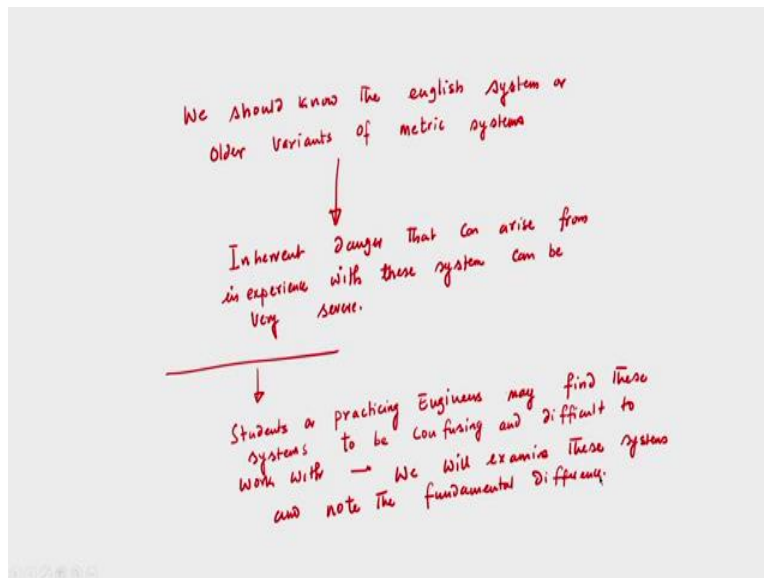 We should know the english system or
older variants of metric systems
Inherent danger that can arise from
in experience with these system can be
very severe.
Students or practicing Engineers may find these
systems to be confusing and difficult to
work with → We will examine these systems
and note the fundamental difference.